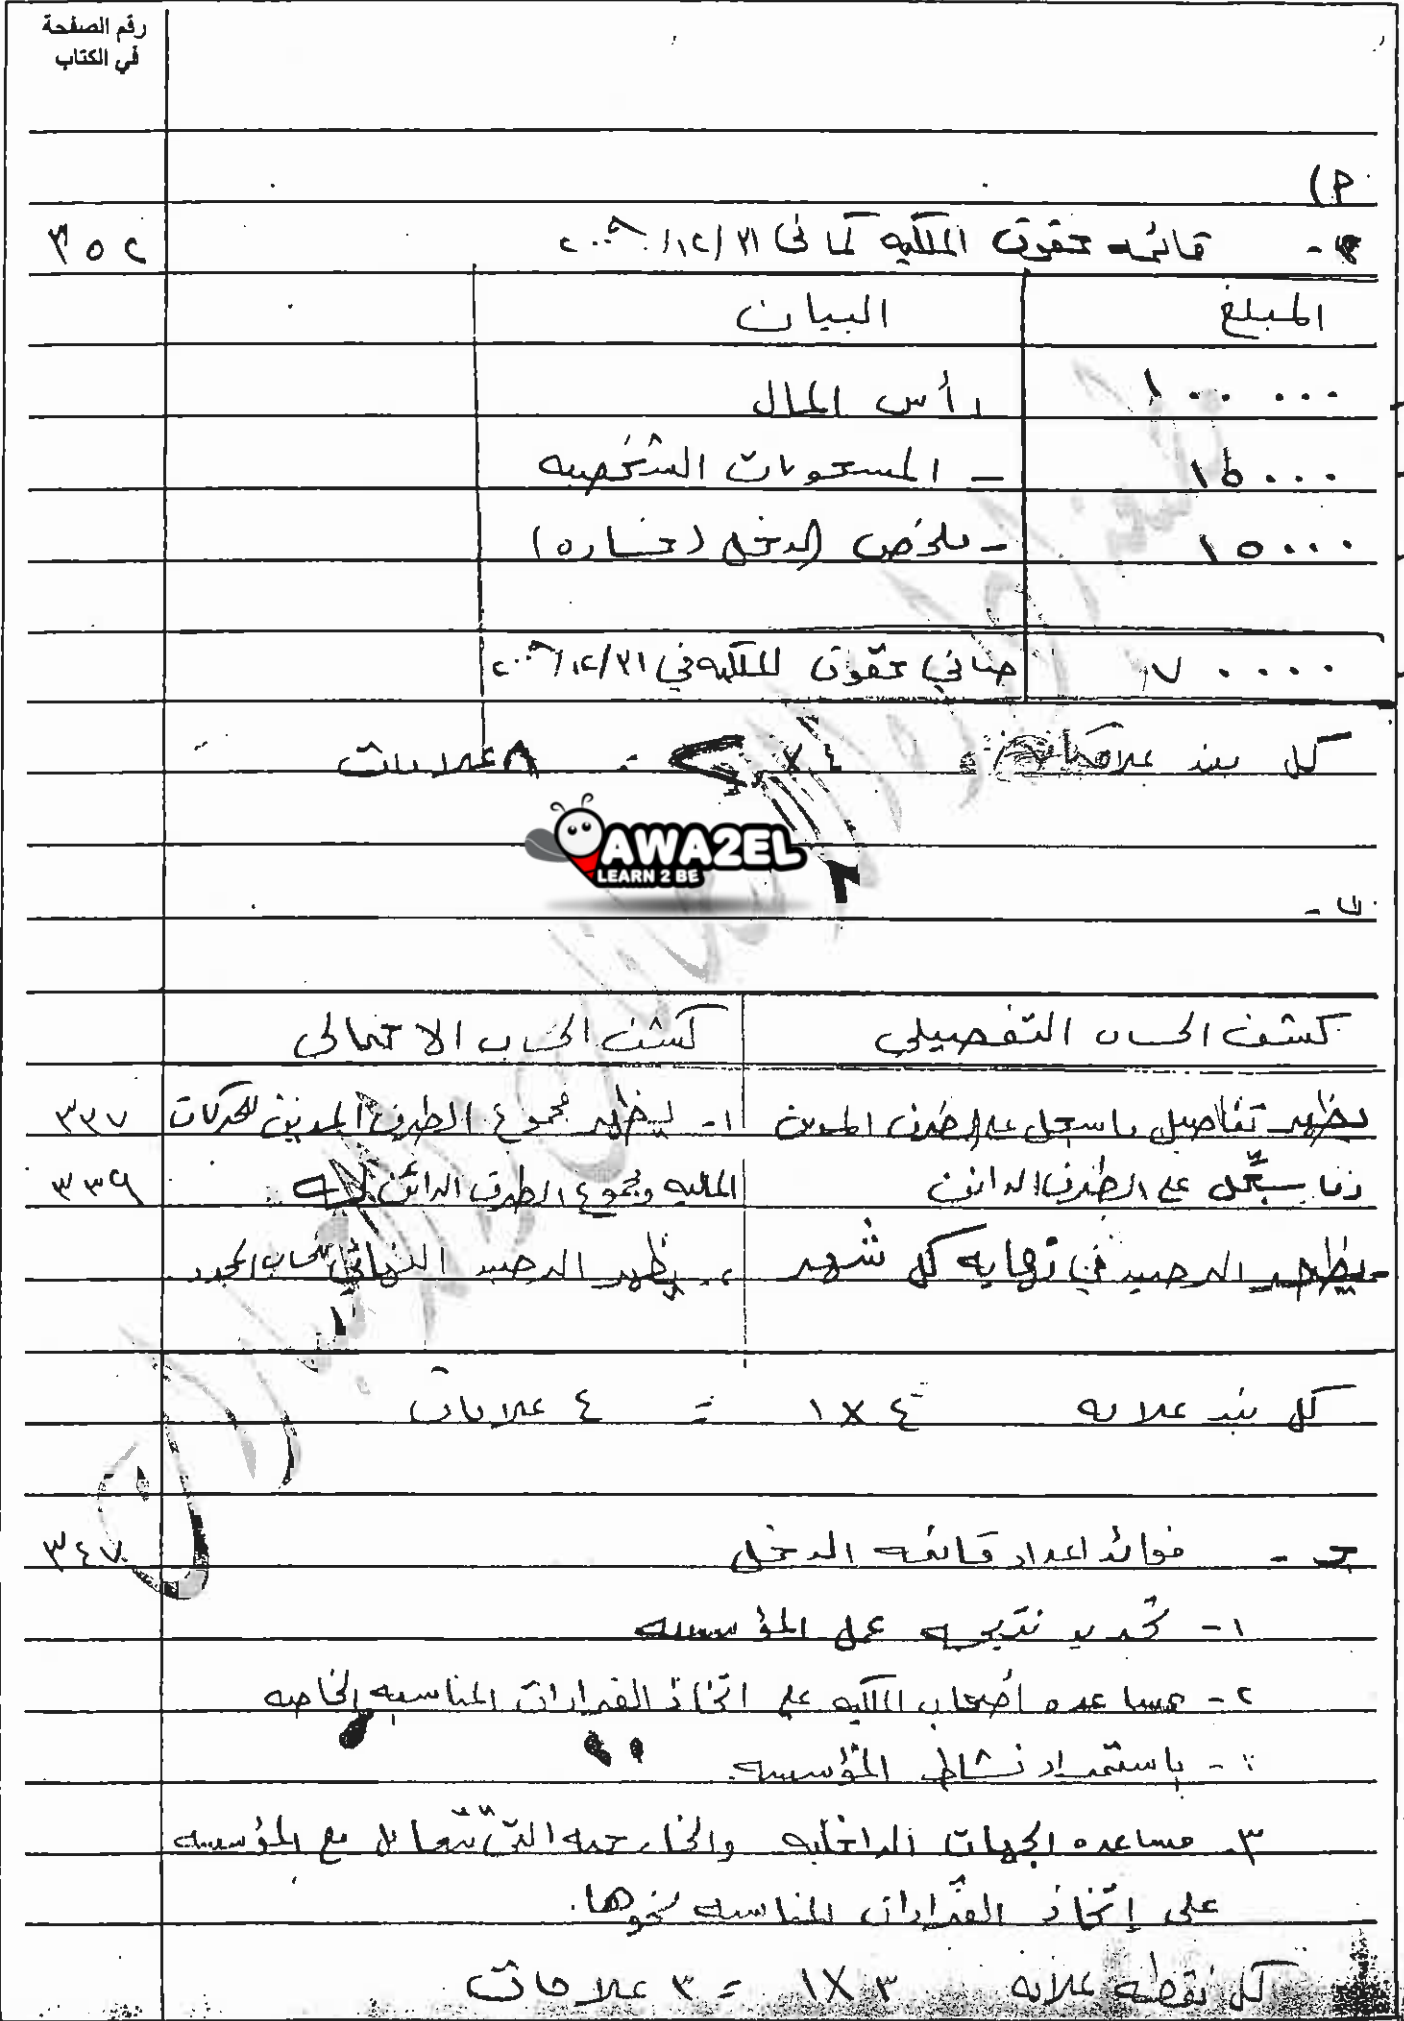 رقم الصفحة
في الكتاب
P)
قائمه حقوق الملكيه كما في ٣١/١٢/٢٠٠٩ ٣٥٢
المبلغ البيان
١٠٠٠٠٠ رأس المال
١٥٠٠٠ - المسحوبات الشخصيه
١٥٠٠٠ - ملخص الدخل (خساره)
٧٠٠٠٠ صافي حقوق الملكيه في ٣١/١٢/٢٠٠٩
كل بند علامتان ٤ × ٢ = ٨ علامات
AWA2EL
LEARN 2 BE
ب -
كشف الحساب التفصيلي كشف الحساب الاجمالي
يظهر تفاصيل ما سجل على الطرف المدين ١- يظهر مجموع الطرف المدين للحركات ٣٣٧
وما سجّل على الطرف الدائن الماليه ومجموع الطرف الدائن له ٣٣٩
- يظهر الرصيد في نهايه كل شهر ٢- يظهر الرصيد النهائي للحساب المحدد
كل بند علامه ٤ × ١ = ٤ علامات
جـ - فوائد اعداد قائمه الدخل ٣٤٧
١- تحديد نتيجه عمل المؤسسه
٢- مساعده أصحاب الملكيه على اتخاذ القرارات المناسبه الخاصه
باستمرار نشاط المؤسسه
٣- مساعده الجهات الداخليه والخارجيه التي تتعامل مع المؤسسه
على إتخاذ القرارات المناسبه نحوها.
كل نقطه علامه ٣ × ١ = ٣ علامات